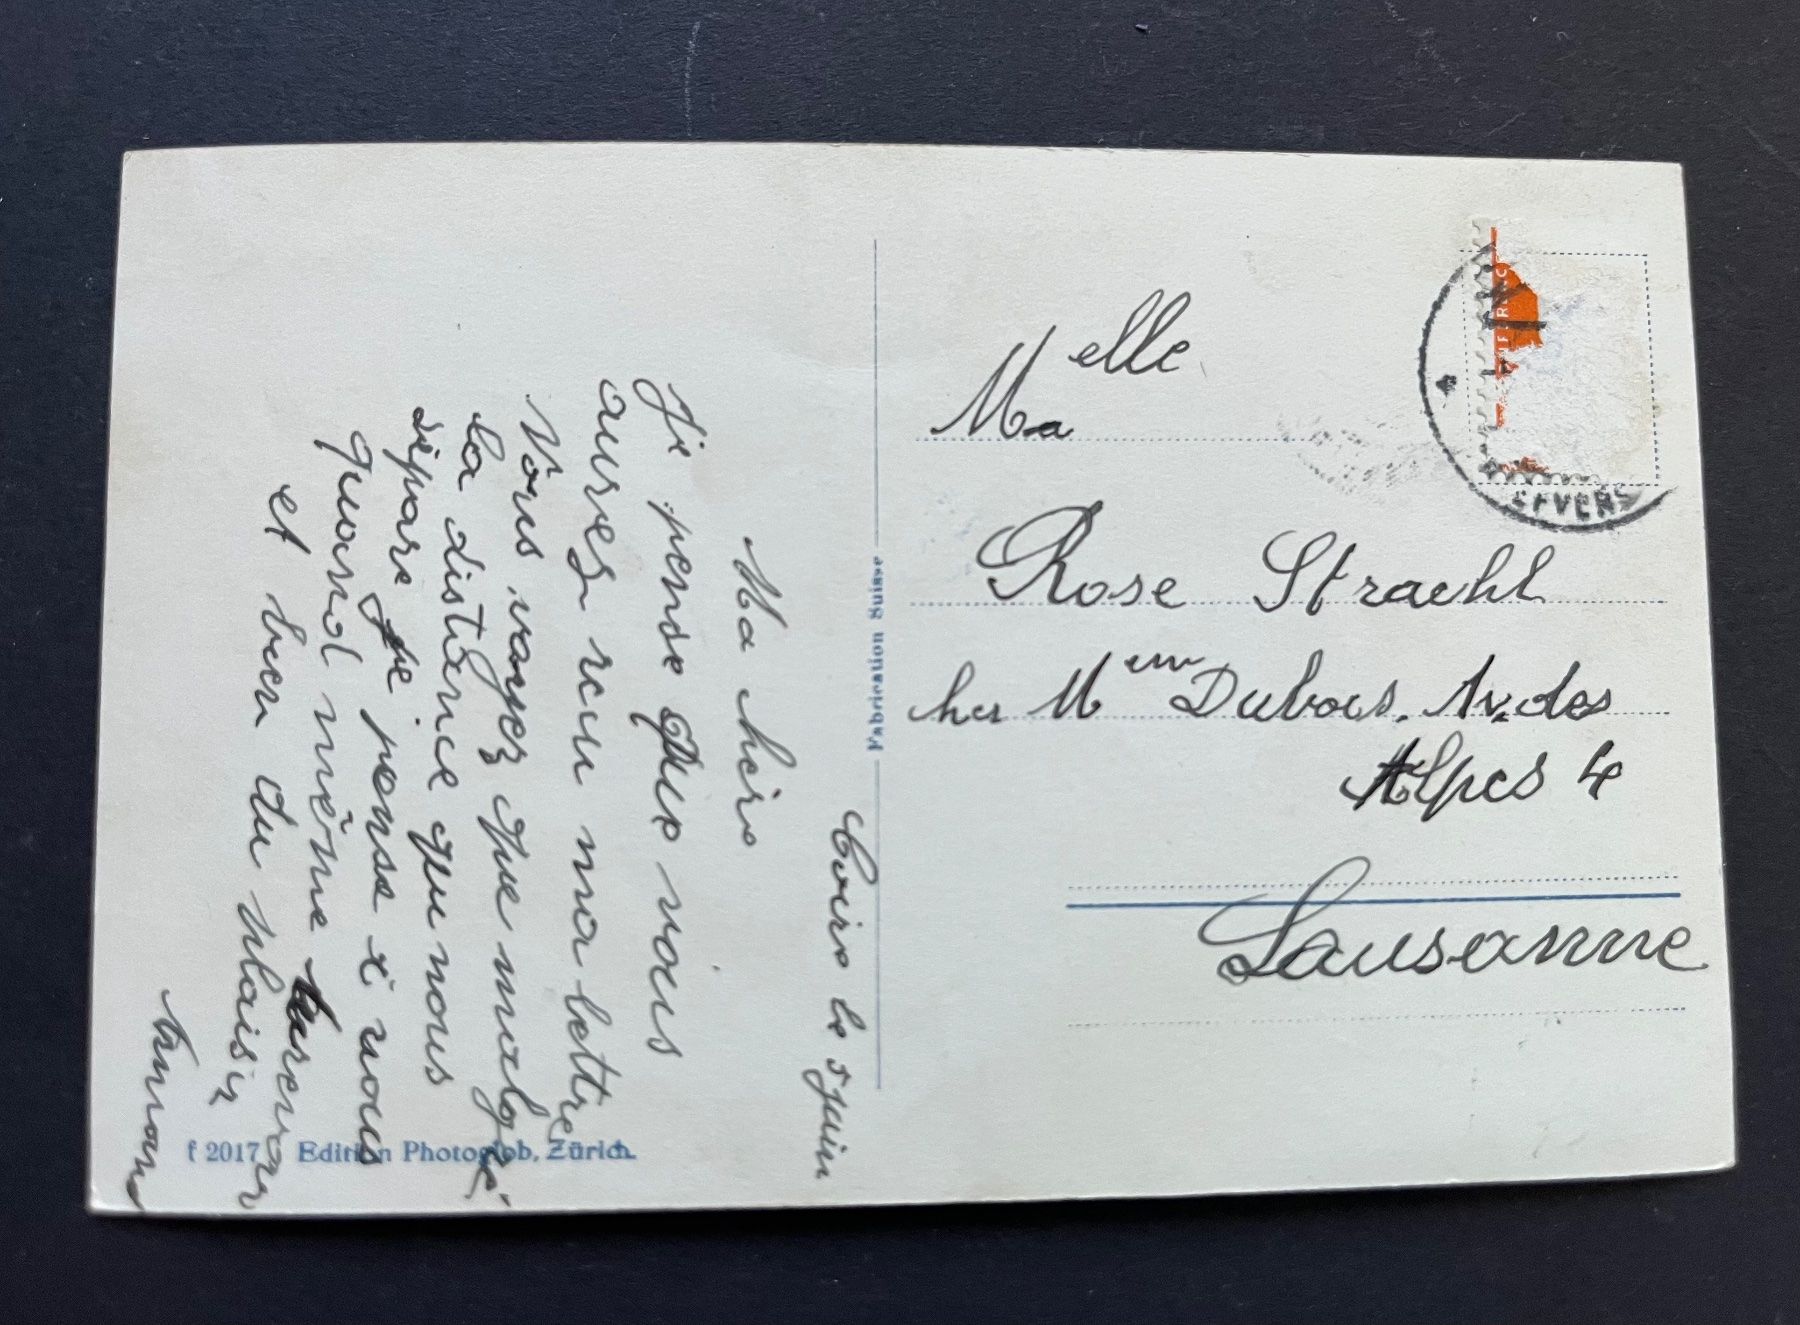 Coire le 5 Juin
Ma hère
Je pense que vous
aures reçu ma lettre
Vous voyez que malgré
la distance qu nous
sépare je pense à vous
quand même
et bien du plaisir
Melle
Ma
Rose Straehl
hes Mem Dubois. Av. des
Alpes 4
Lausanne
Fabrication Suisse
f 2017 Edition Photoglob, Zürich.